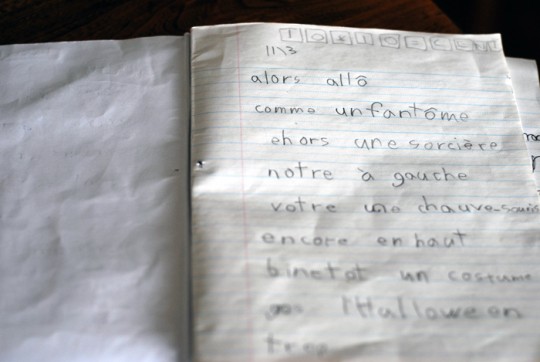 11\3
alors allô
comme un fantôme
ehors une sorcière
notre à gauche
votre une chauve-souris
encore en haut
binetot un costume
l'Halloween
trop